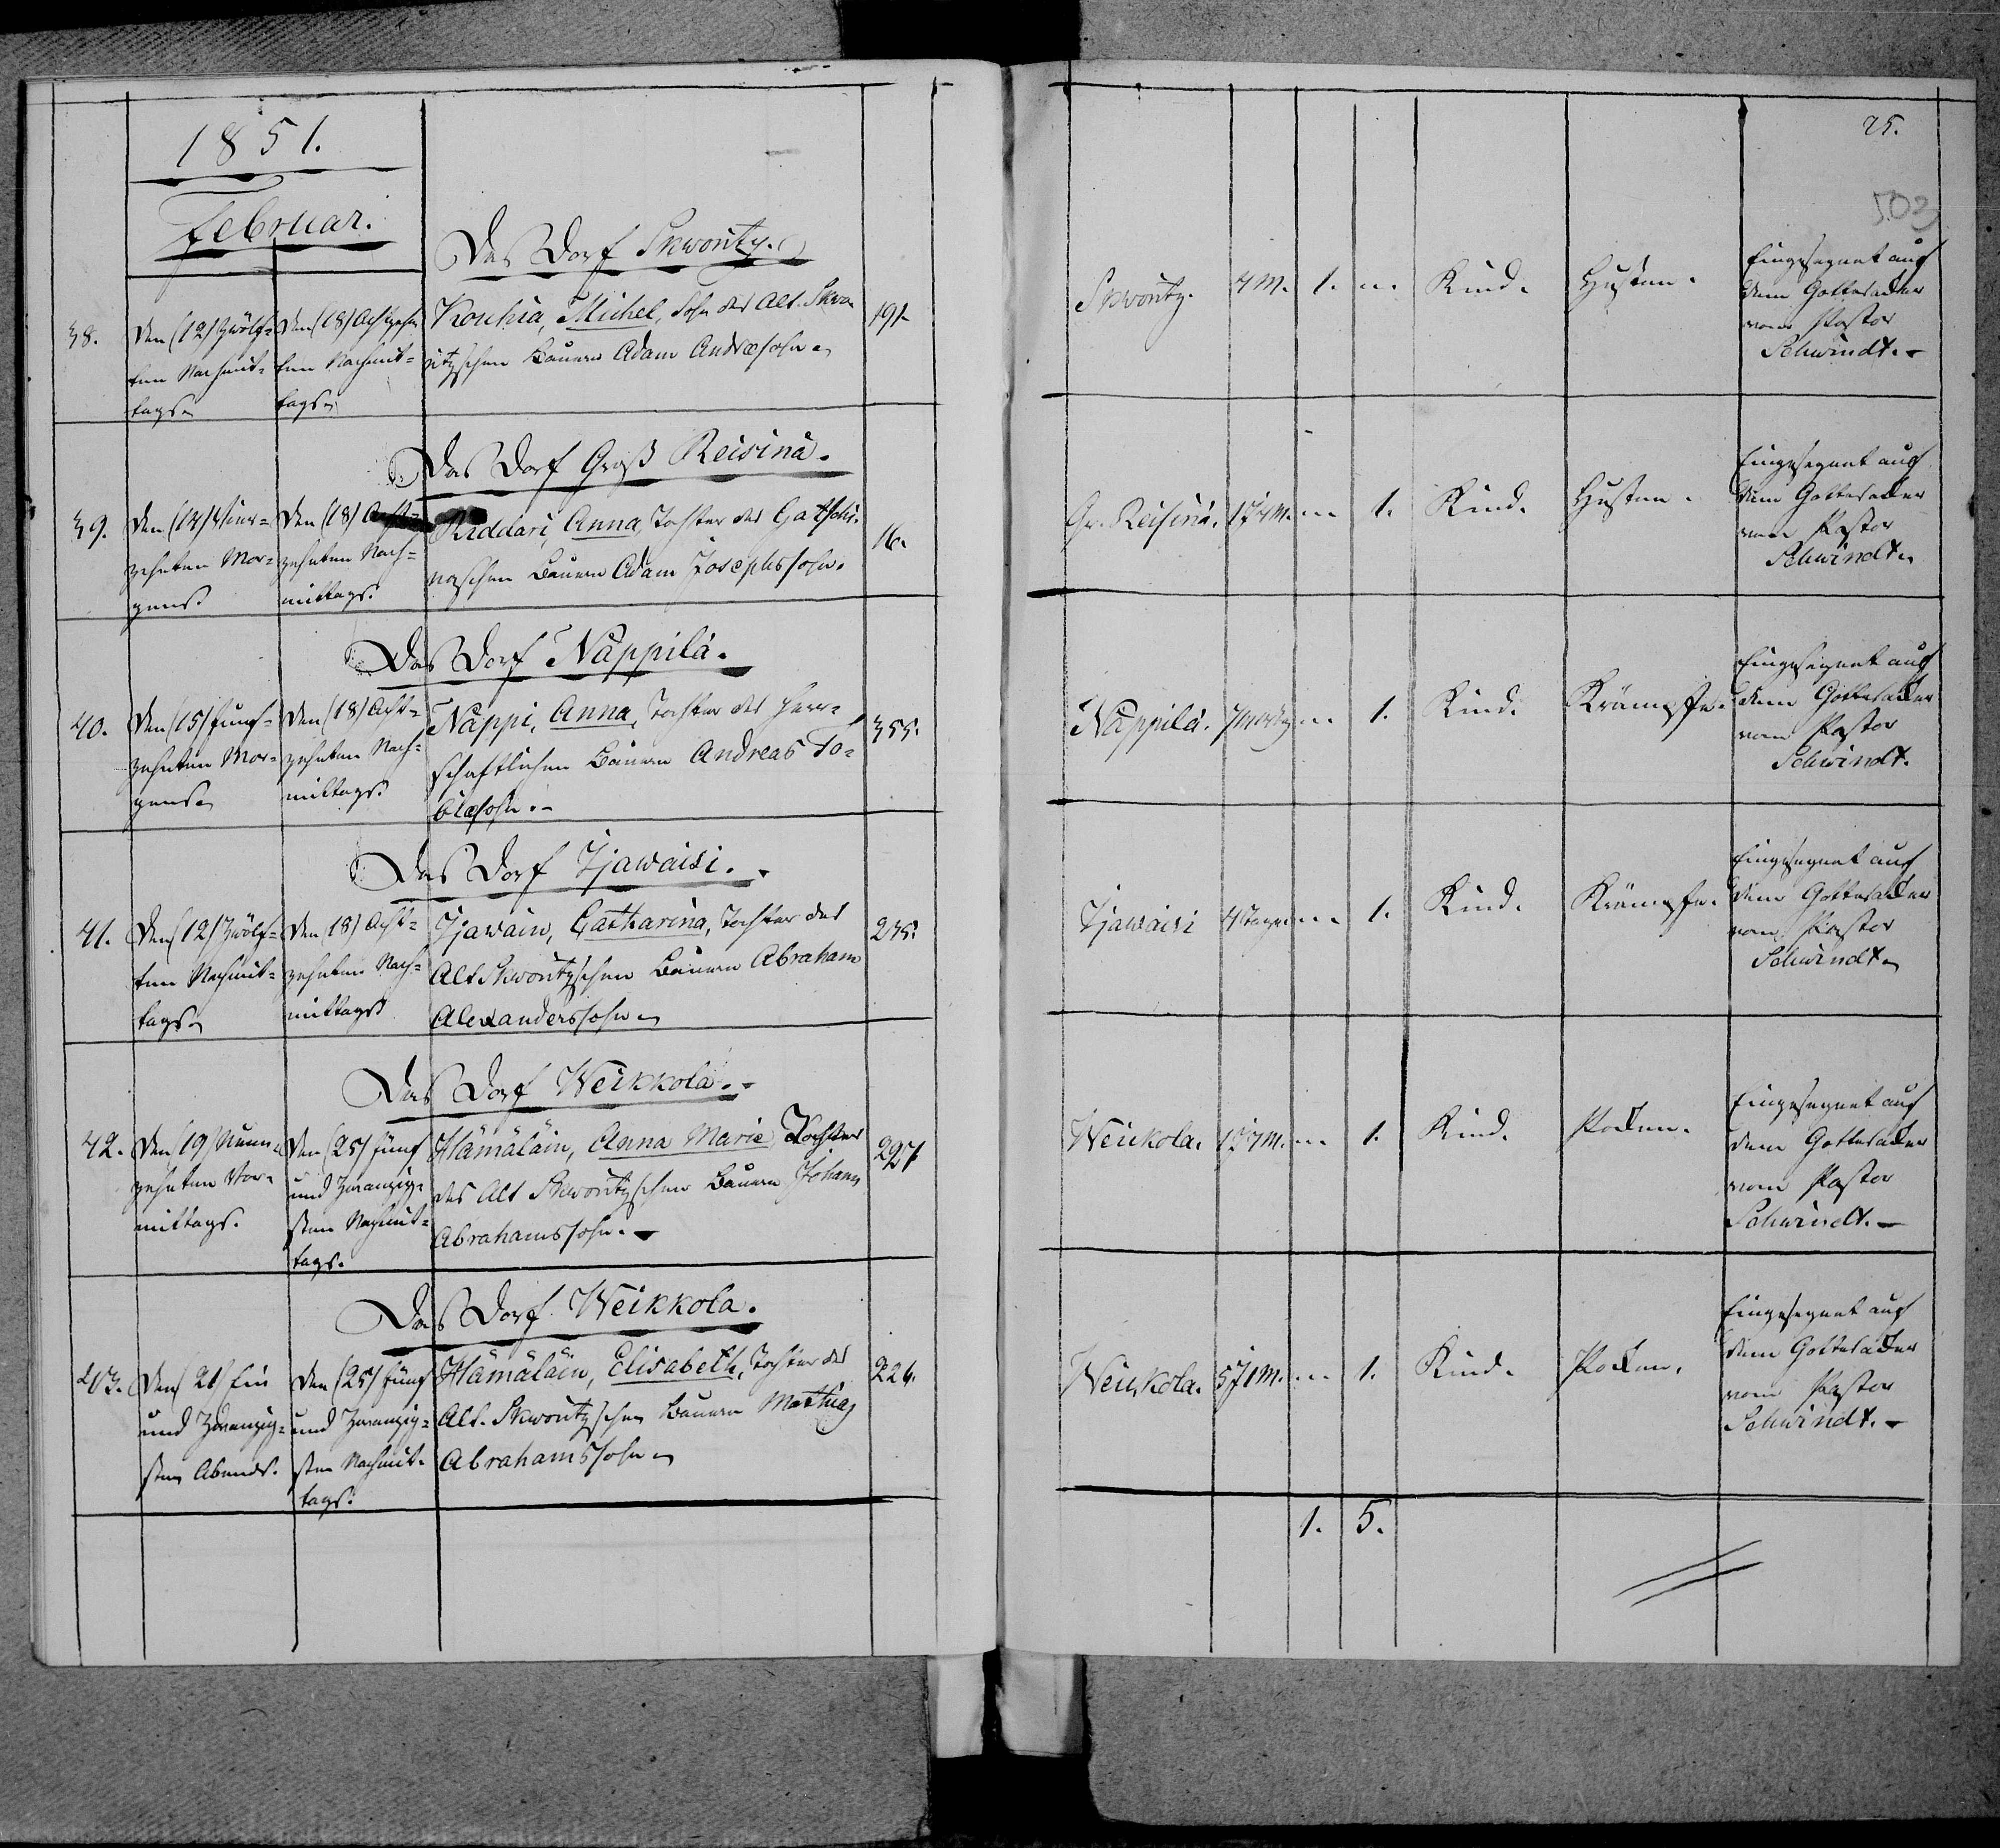 1851.
Februar.
Das Dorf Skworitz.
38.
Den (12) Zwölf-
ten Nachmit-
tags.
Den (18) Achtzehn
ten Nachmit-
tags.
Kouhia, Michel, Sohn des Alt. Skwo-
ritzschen Bauern Adam Andræsohn.
191.
Das Dorf Groß Reisinä.
39.
Den (14) Vier-
zehnten Mor-
gens.
Den (18) Acht-
zehnten Nach-
mittags.
Riddari, Anna, Tochter des Gatschi-
naschen Bauern Adam Josephssohn.
16.
Das Dorf Näppilä.
40.
Den (15) Fünf-
zehnten Mor-
gens.
Den (18) Acht-
zehnten Nach-
mittags.
Näppi, Anna, Tochter des Herr-
schaftlichen Bauern Andreas To-
biæsohn.
355.
Das Dorf Tjawaisi.
41.
Den (12) Zwölf-
ten Nachmit-
tags.
Den (18) Acht-
zehnten Nach-
mittags
Tjawain, Catharina, Tochter des
Alt Skworitzschen Bauern Abraham
Alexanderssohn.
235.
Das Dorf Weikkola.
42.
Den (19) Neun-
zehnten Vor-
mittags.
Den (25) Fünf
und Zwanzig-
sten Nachmit-
tags.
Hämäläin, Anna Marie, Tochter
des Alt Skworitzschen Bauern Johann
Abrahamssohn.
227
Das Dorf Weikkola.
43.
Den (21) Ein
und Zwanzig-
sten Abends.
Den (25) Fünf
und Zwanzig-
sten Nachmit-
tags.
Hämäläin, Elisabeth, Tochter des
Alt. Skworitzschen Bauern Mathias
Abrahamssohn
226.
25.
503
Skworitz.
4 M.
1.
Kind.
Husten.
Eingesegnet auf
dem Gottesacker
vom Pastor
Schwindt.
Gr. Reisinä.
1.
Kind.
Husten.
Eingesegnet auf
dem Gottesacker
vom Pastor
Schwindt.
Näppilä.
1.
Kind.
Krämpfe.
Eingesegnet auf
dem Gottesacker
vom Pastor
Schwindt.
Tjawaisi
4 Tage
1.
Kind.
Krämpfe.
Eingesegnet auf
dem Gottesacker
vom Pastor
Schwindt.
Weikkola.
1.
Kind.
Pocken.
Eingesegnet auf
dem Gottesacker
vom Pastor
Schwindt.
Weikkola.
5 J 1 M.
1.
Kind.
Pocken.
Eingesegnet auf
dem Gottesacker
vom Pastor
Schwindt.
1. 5.